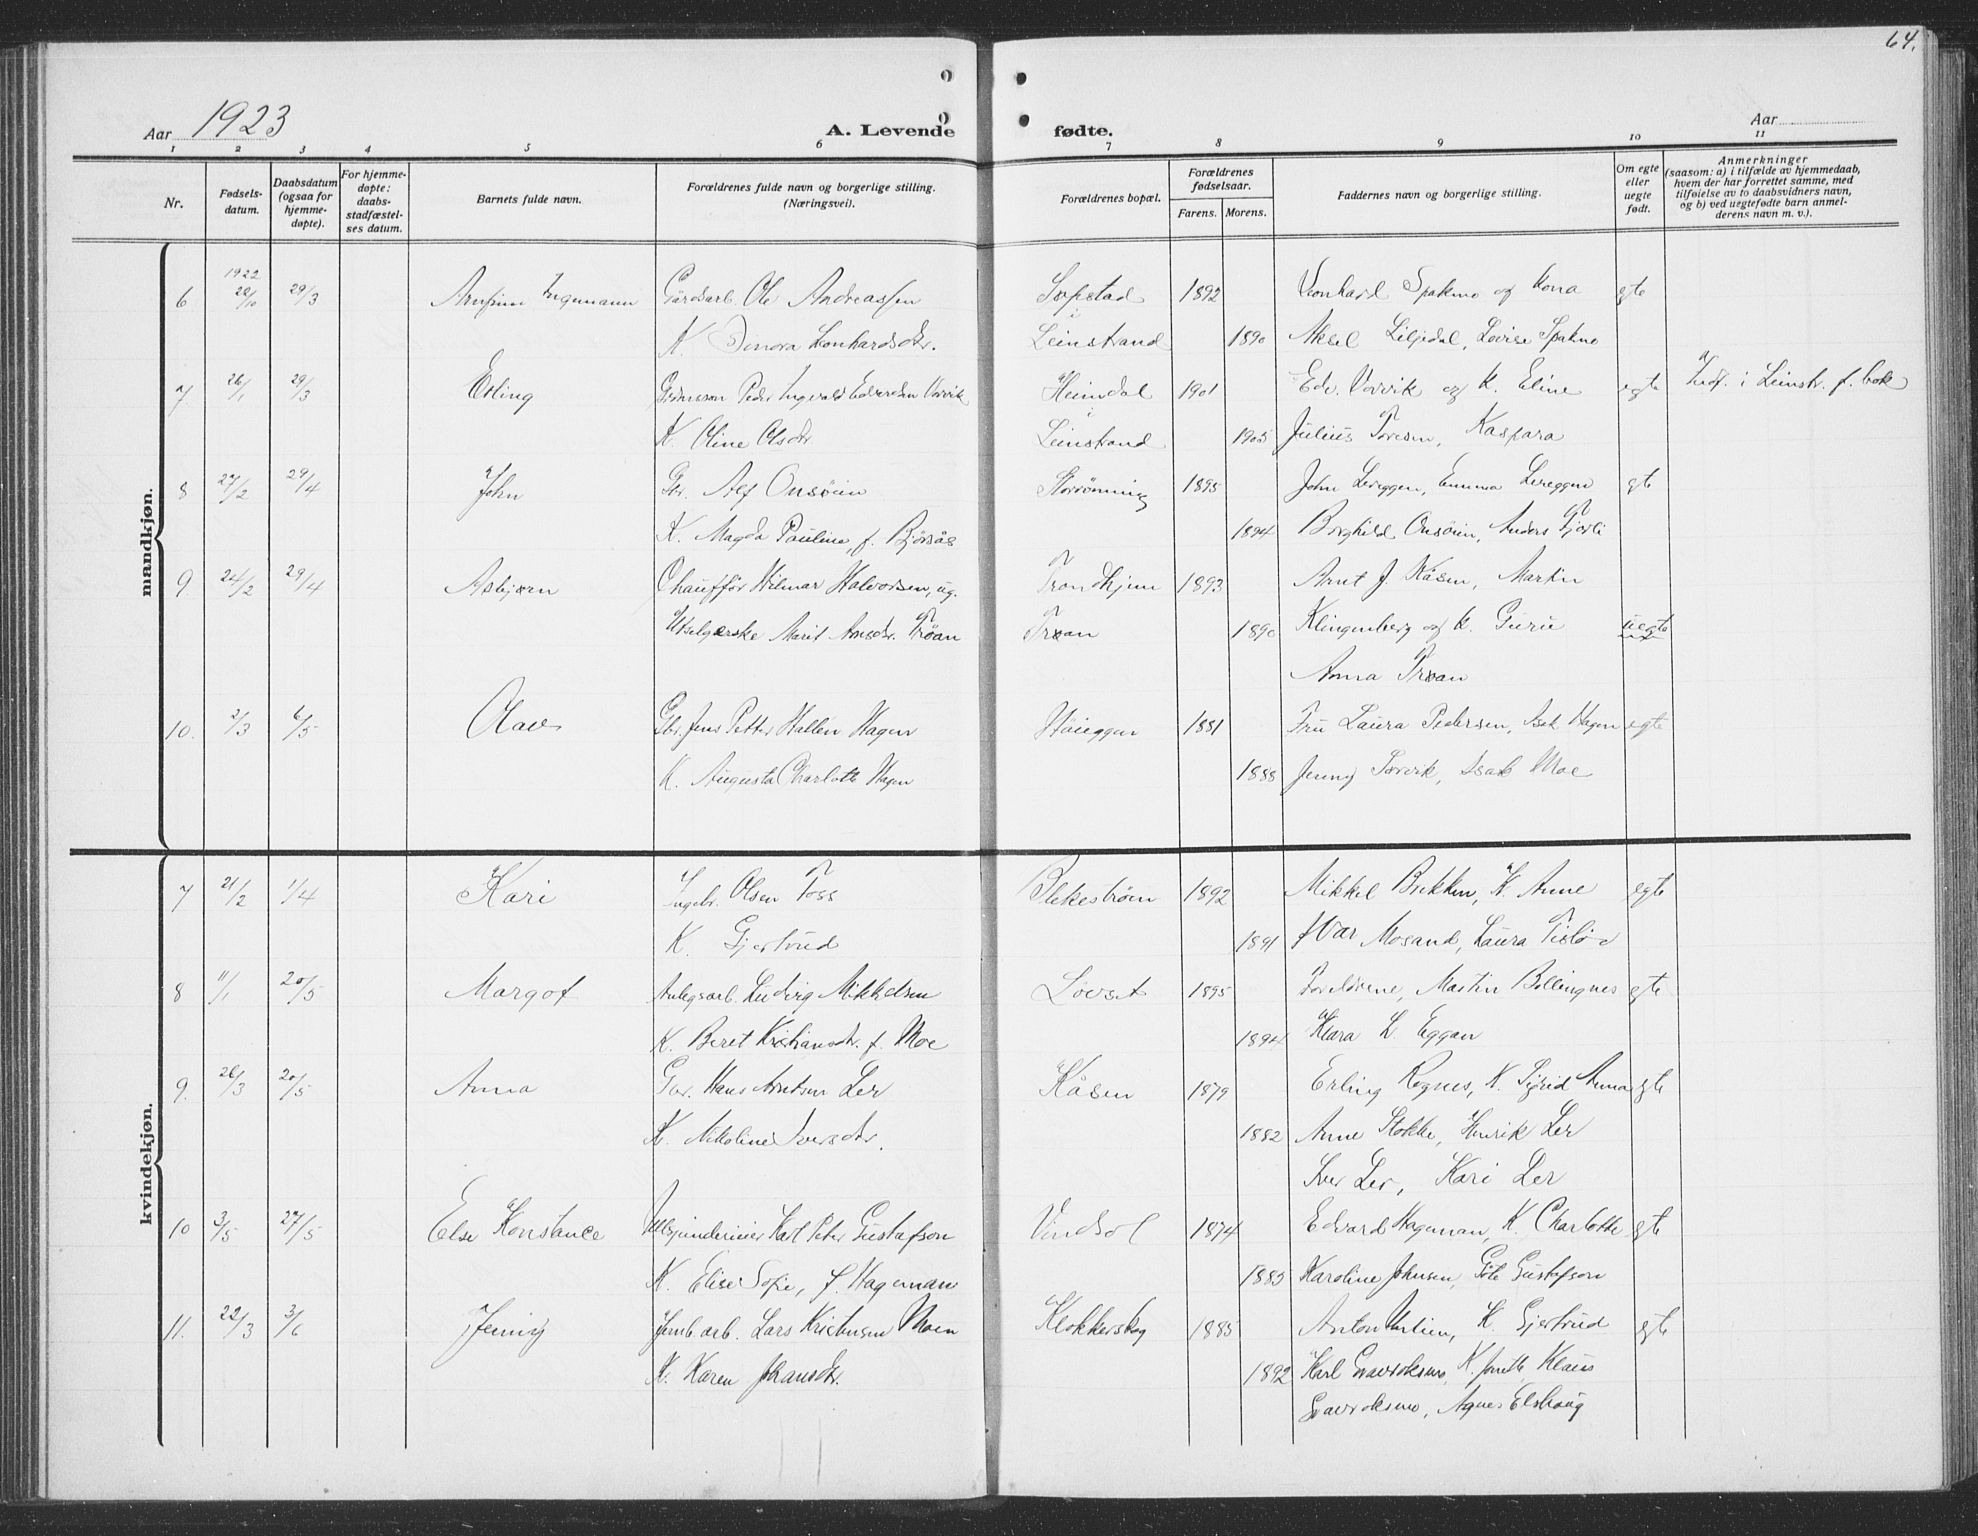 64.
Aar 1923
A. Levende fødte.
Aar
1 2 3 4 5 6 7 8 9 10 11
Nr.
Fødsels-
datum.
Daabsdatum
(ogsaa for
hjemme-
døpte).
For hjemme-
døpte:
daabs-
stadfæstel-
ses datum.
Barnets fulde navn.
Forældrenes fulde navn og borgerlige stilling.
(Næringsvei).
Forældrenes bopæl.
Forældrenes
fødselsaar.
Farens. Morens.
Faddernes navn og borgerlige stilling.
Om egte
eller
uegte
født.
Anmerkninger
(saasom: a) i tilfælde av hjemmedaab,
hvem der har forrettet samme, med
tilføielse av to daabsvidners navn,
og b) ved uegtefødte barn anmel-
derens navn m. v.).
mandkjøn.
1922
6 28/10 29/3 Arnfinn Ingemann Gårdsarb. Ole Andreassen Sopstad 1892 Leonhard Spakmo og kona egte
K. Dinora Leonhardsdtr. i Leinstrand 1890 Aksel Liljedal, Lovise Spakmo
7 26/1 29/3 Erling Grdmsson Peder Ingevald Edvardsen Vorvik Heimdal 1901 Edv. Vorvik og K. Eline egte Indf. i Leinstr. f. bok
K. Oline Olsdtr i Leinstrand 1905 Julius Toresen, Kaspara
8 27/2 29/4 John Gbr. Alf Onsøien Storrønning 1895 John Lereggen, Emma Lereggen egte
K. Magda Pauline, f. Bjørsås 1894 Borghild Onsøien, Anders Tjerli
9 24/2 29/4 Asbjørn Chauffør Hilmar Halvorsen, ug. Trondhjem 1893 Arnt J. Kåsen, Martin
Utselgerske Marit Arnsdtr. Trøan Trøan 1890 Klingenberg og K. Guru uegte
Anna Trøan
10. 2/3 6/5 Olav Gbr. Jens Petter Hallen Hagen Høieggen 1881 Fru Laura Pedersen, Isak Hagen egte
K. Augusta Charlotte Hagen 1888 Jenny Torvik, Isak Moe
kvindekjøn.
7 21/2 1/4 Kari Ingebr. Olsen Foss Flekestrøm 1892 Mikkel Brekken, K. Anne egte
K. Gjertrud 1891 Ivar Mosand, Laura Tisløv
8 11/1 20/5 Margot Anlegsarb. Ludvig Mikkelsen Løvset 1895 Foreldrene, Martin Bollingmo egte
K. Beret Kristiansdtr. f. Moe 1894 Klara L. Eggan
9. 26/3 20/5 Anna Gbr. Hans Arntsen Ler Kåsen 1879 Erling Rognes, K. Sigrid Anna egte
K. Nikoline Iversdtr. 1882 Anne Stokke, Henrik Ler
Iver Ler, Kari Ler
10 3/5 27/5 Else Konstance Karl Peter Gustafson Vindsol 1874 Edvard Hageman, K. Charlotte egte
K. Elise Sofie, f. Hageman 1885 Karoline Johnsen, Göte Gustafson
11. 22/3 3/6 Jenny Jernb.arb. Lars Kristensen Moen Klokkerskog 1885 Anton Untien, K. Gjertrud egte
K. Karen Johansdtr. 1892 Karl Gravroksmo, K. Jonette Klaus
Gravroksmo, Agnes Elshaug